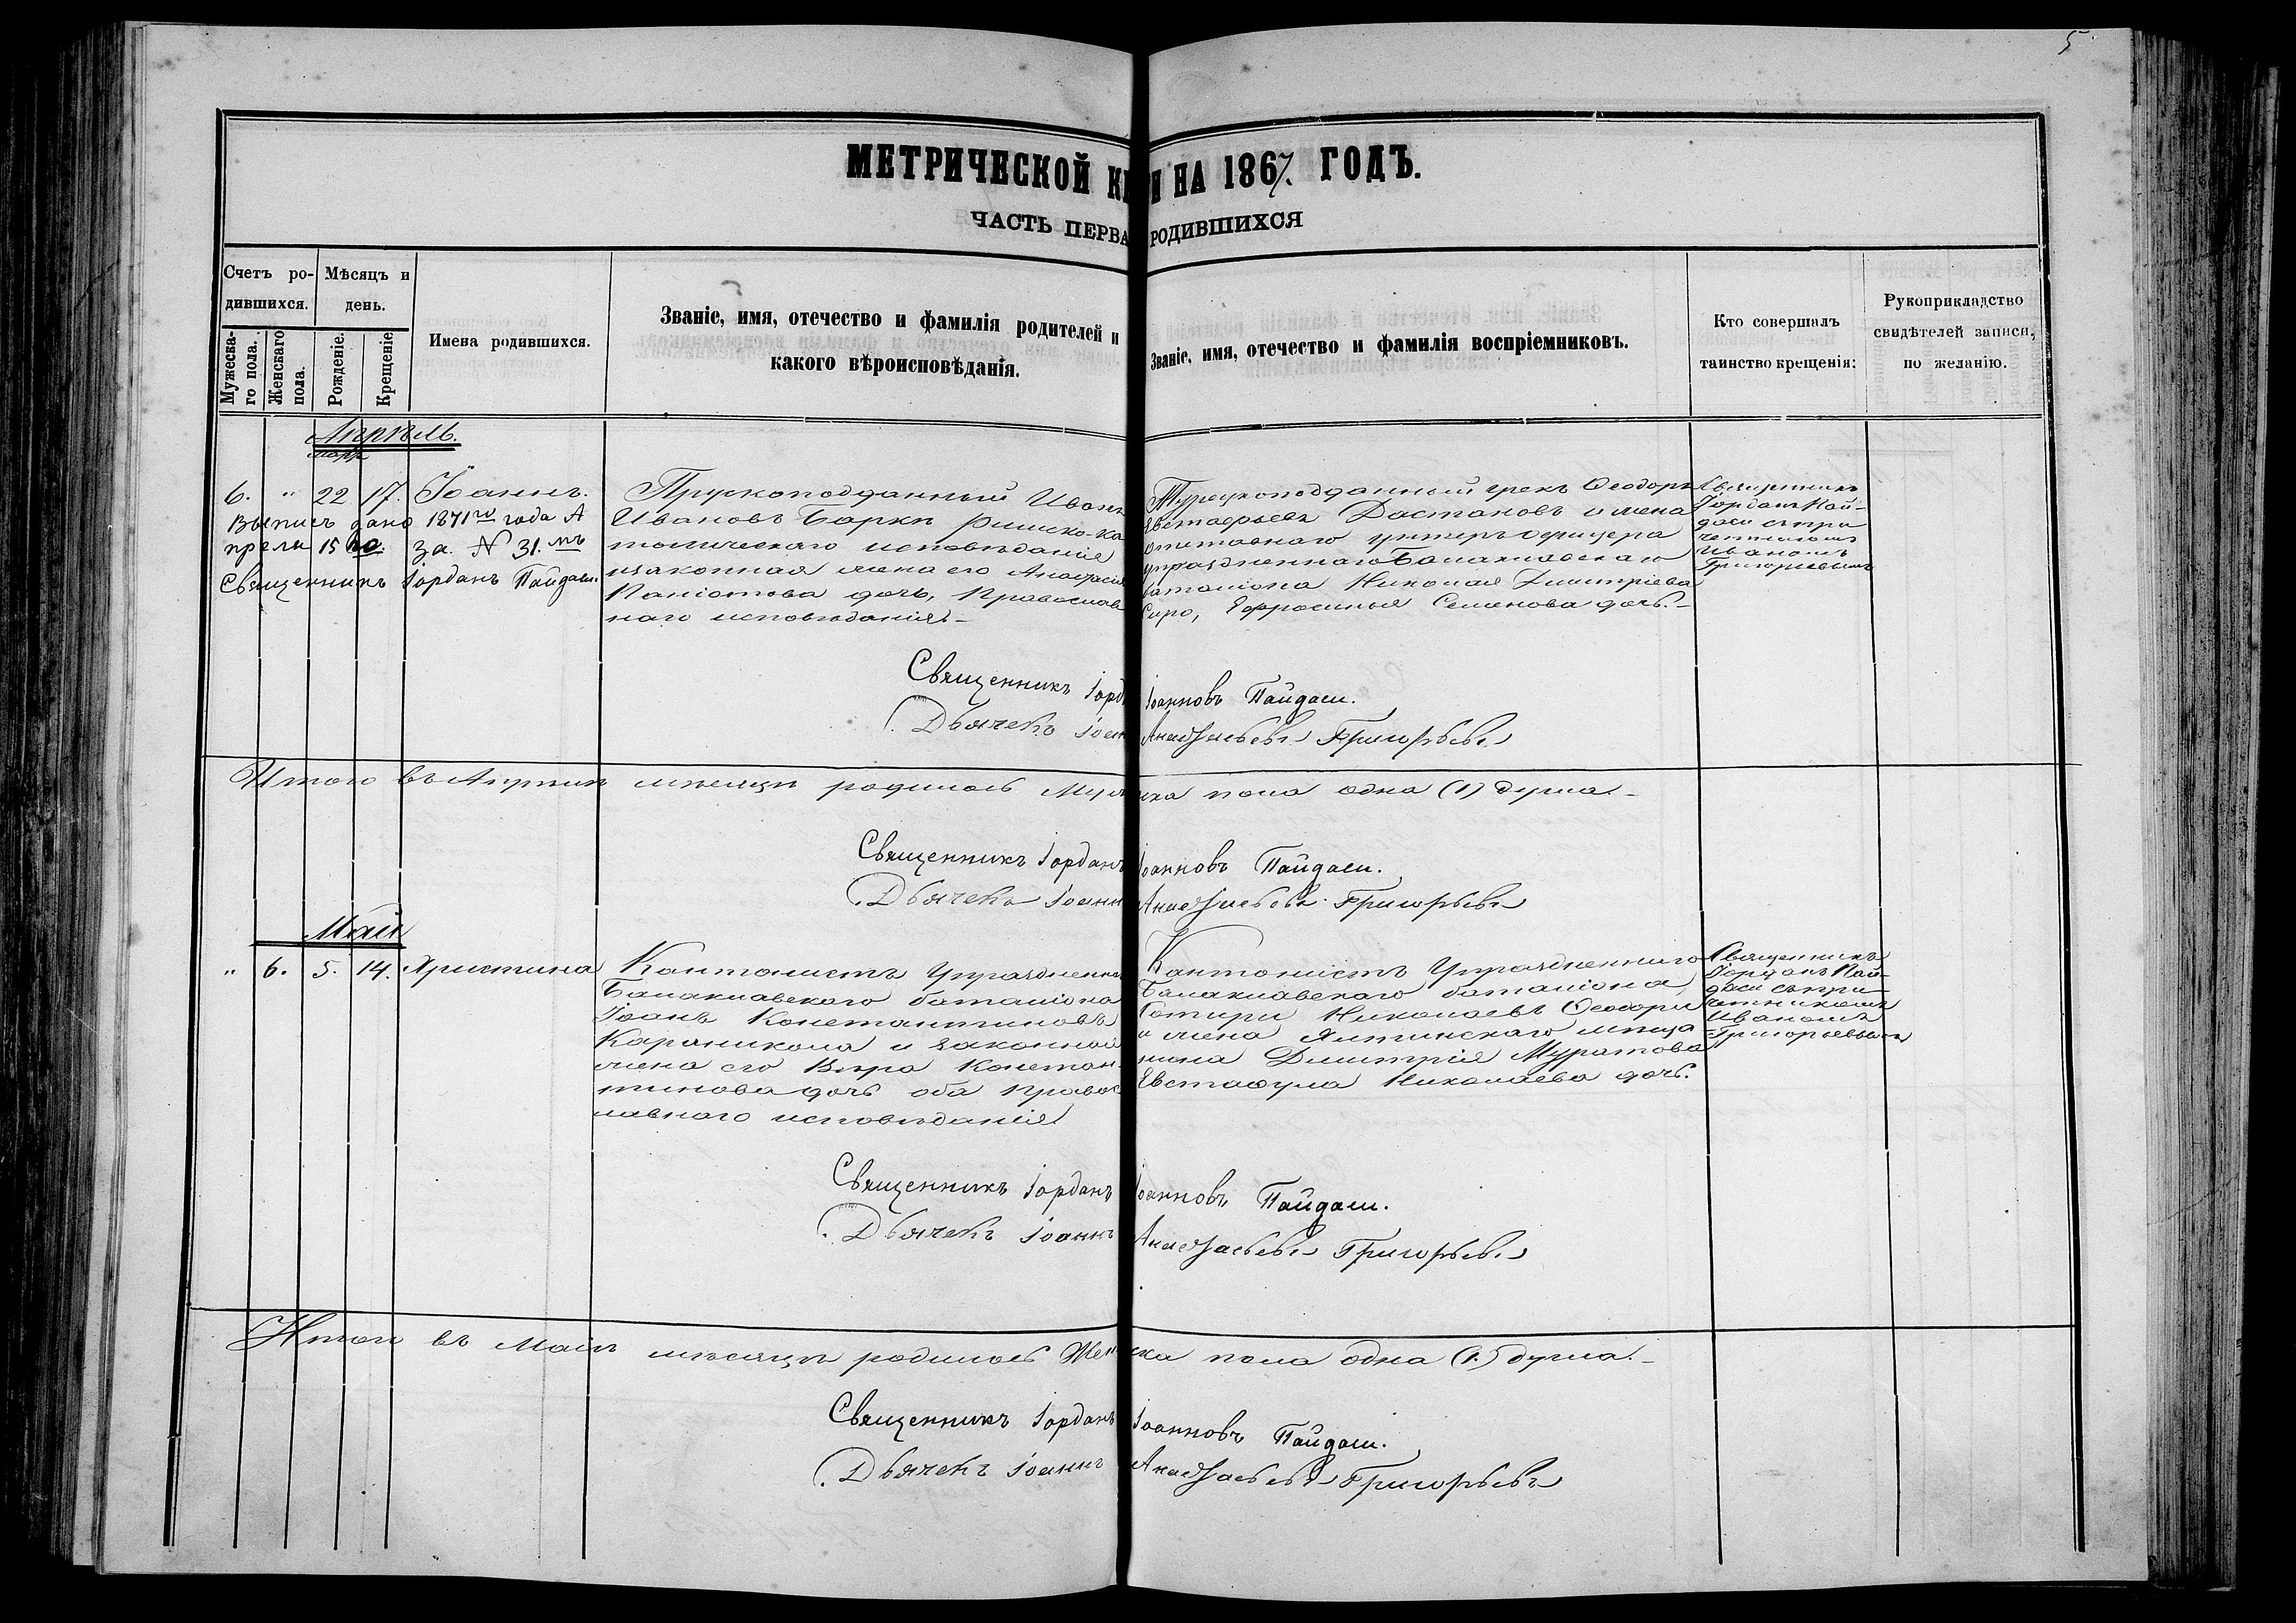 5
МЕТРИЧЕСКОЙ КН И НА 1867. ГОДЪ.
ЧАСТЬ ПЕРВА РОДИВШИХСЯ
Счетъ ро-
дившихся.
Мѣсяцъ и
день.
Мужеска-
го пола.
Женскаго
пола.
Рожденіе.
Крещеніе
Имена родившихся.
Званіе, имя, отечество и фамилія родителей и
какого вѣроисповѣданія.
Званіе, имя, отечество и фамилія воспріемниковъ.
Кто совершалъ
таинство крещенія:
Рукоприкладство
свидѣтелей записи,
по желанію.
Апрѣль.
мар
6. " 22 17. Іоаннъ.
Выпись дано 1871го года А
прѣля 15 го. за N 31.мъ
Священникъ Іорданъ Пайдаси.
Прускоподданный Иванъ
Ивановъ Барки римско-ка
толическаго исповѣданія
изаконная жена его Анастасія
Паніотова дочь, Православ
наго исповѣданія.-
Турецкоподданный грекъ Ѳеодоръ
Евстафьевъ Дастановъ и жена
отставнаго унтеръ офицера
упраздненнаго Балаклавскаго
баталіона Николая Димитріева
Сиро, Ефросинья Семенова дочь.-
Священникъ
Іорданъ Пай-
даси съ при
четникомъ
Иваномъ
Григорьевымъ
Священникъ Іорд Іоанновъ Пайдаси.
Дьячекъ Іоан Анастасьевъ Григорьевъ
Итого въ Апрѣлѣ мѣсяцѣ родилось Муж ска пола одна (1) душа.-
Священникъ Іорданъ Іоанновъ Пайдаси.
Дьячекъ Іоанн Анастасьевъ Григорьевъ
Май
" 6. 5. 14. Христина
Кантонистъ Упраздненна
Балаклавскаго баталіона
Іоанъ Константиновъ
Караникола и законная
жена его Вѣра Констан-
тинова дочь оба Правос
лавнаго исповѣданія
Кантонистъ Упраздненнаго
Балаклавскаго баталіона,
Сотири Николаевъ Ѳеодори
и жена Ялтинскаго мѣща
нина Димитрія Муратова
Николаева дочь.
Священникъ
Іорданъ Пай-
даси съ при-
четникомъ
Иваномъ
Григорьевымъ
Священникъ Іорданъ Іоанновъ Пайдаси.
Дьячекъ Іоаннъ Анастасьевъ Григорьевъ
Итого въ Маѣ мѣсяцѣ родилось Жен ска пола одна (1.) душа.-
Священникъ Іорданъ Іоанновъ Пайдаси.
Дьячекъ Іоаннъ Анастасьевъ Григорьевъ